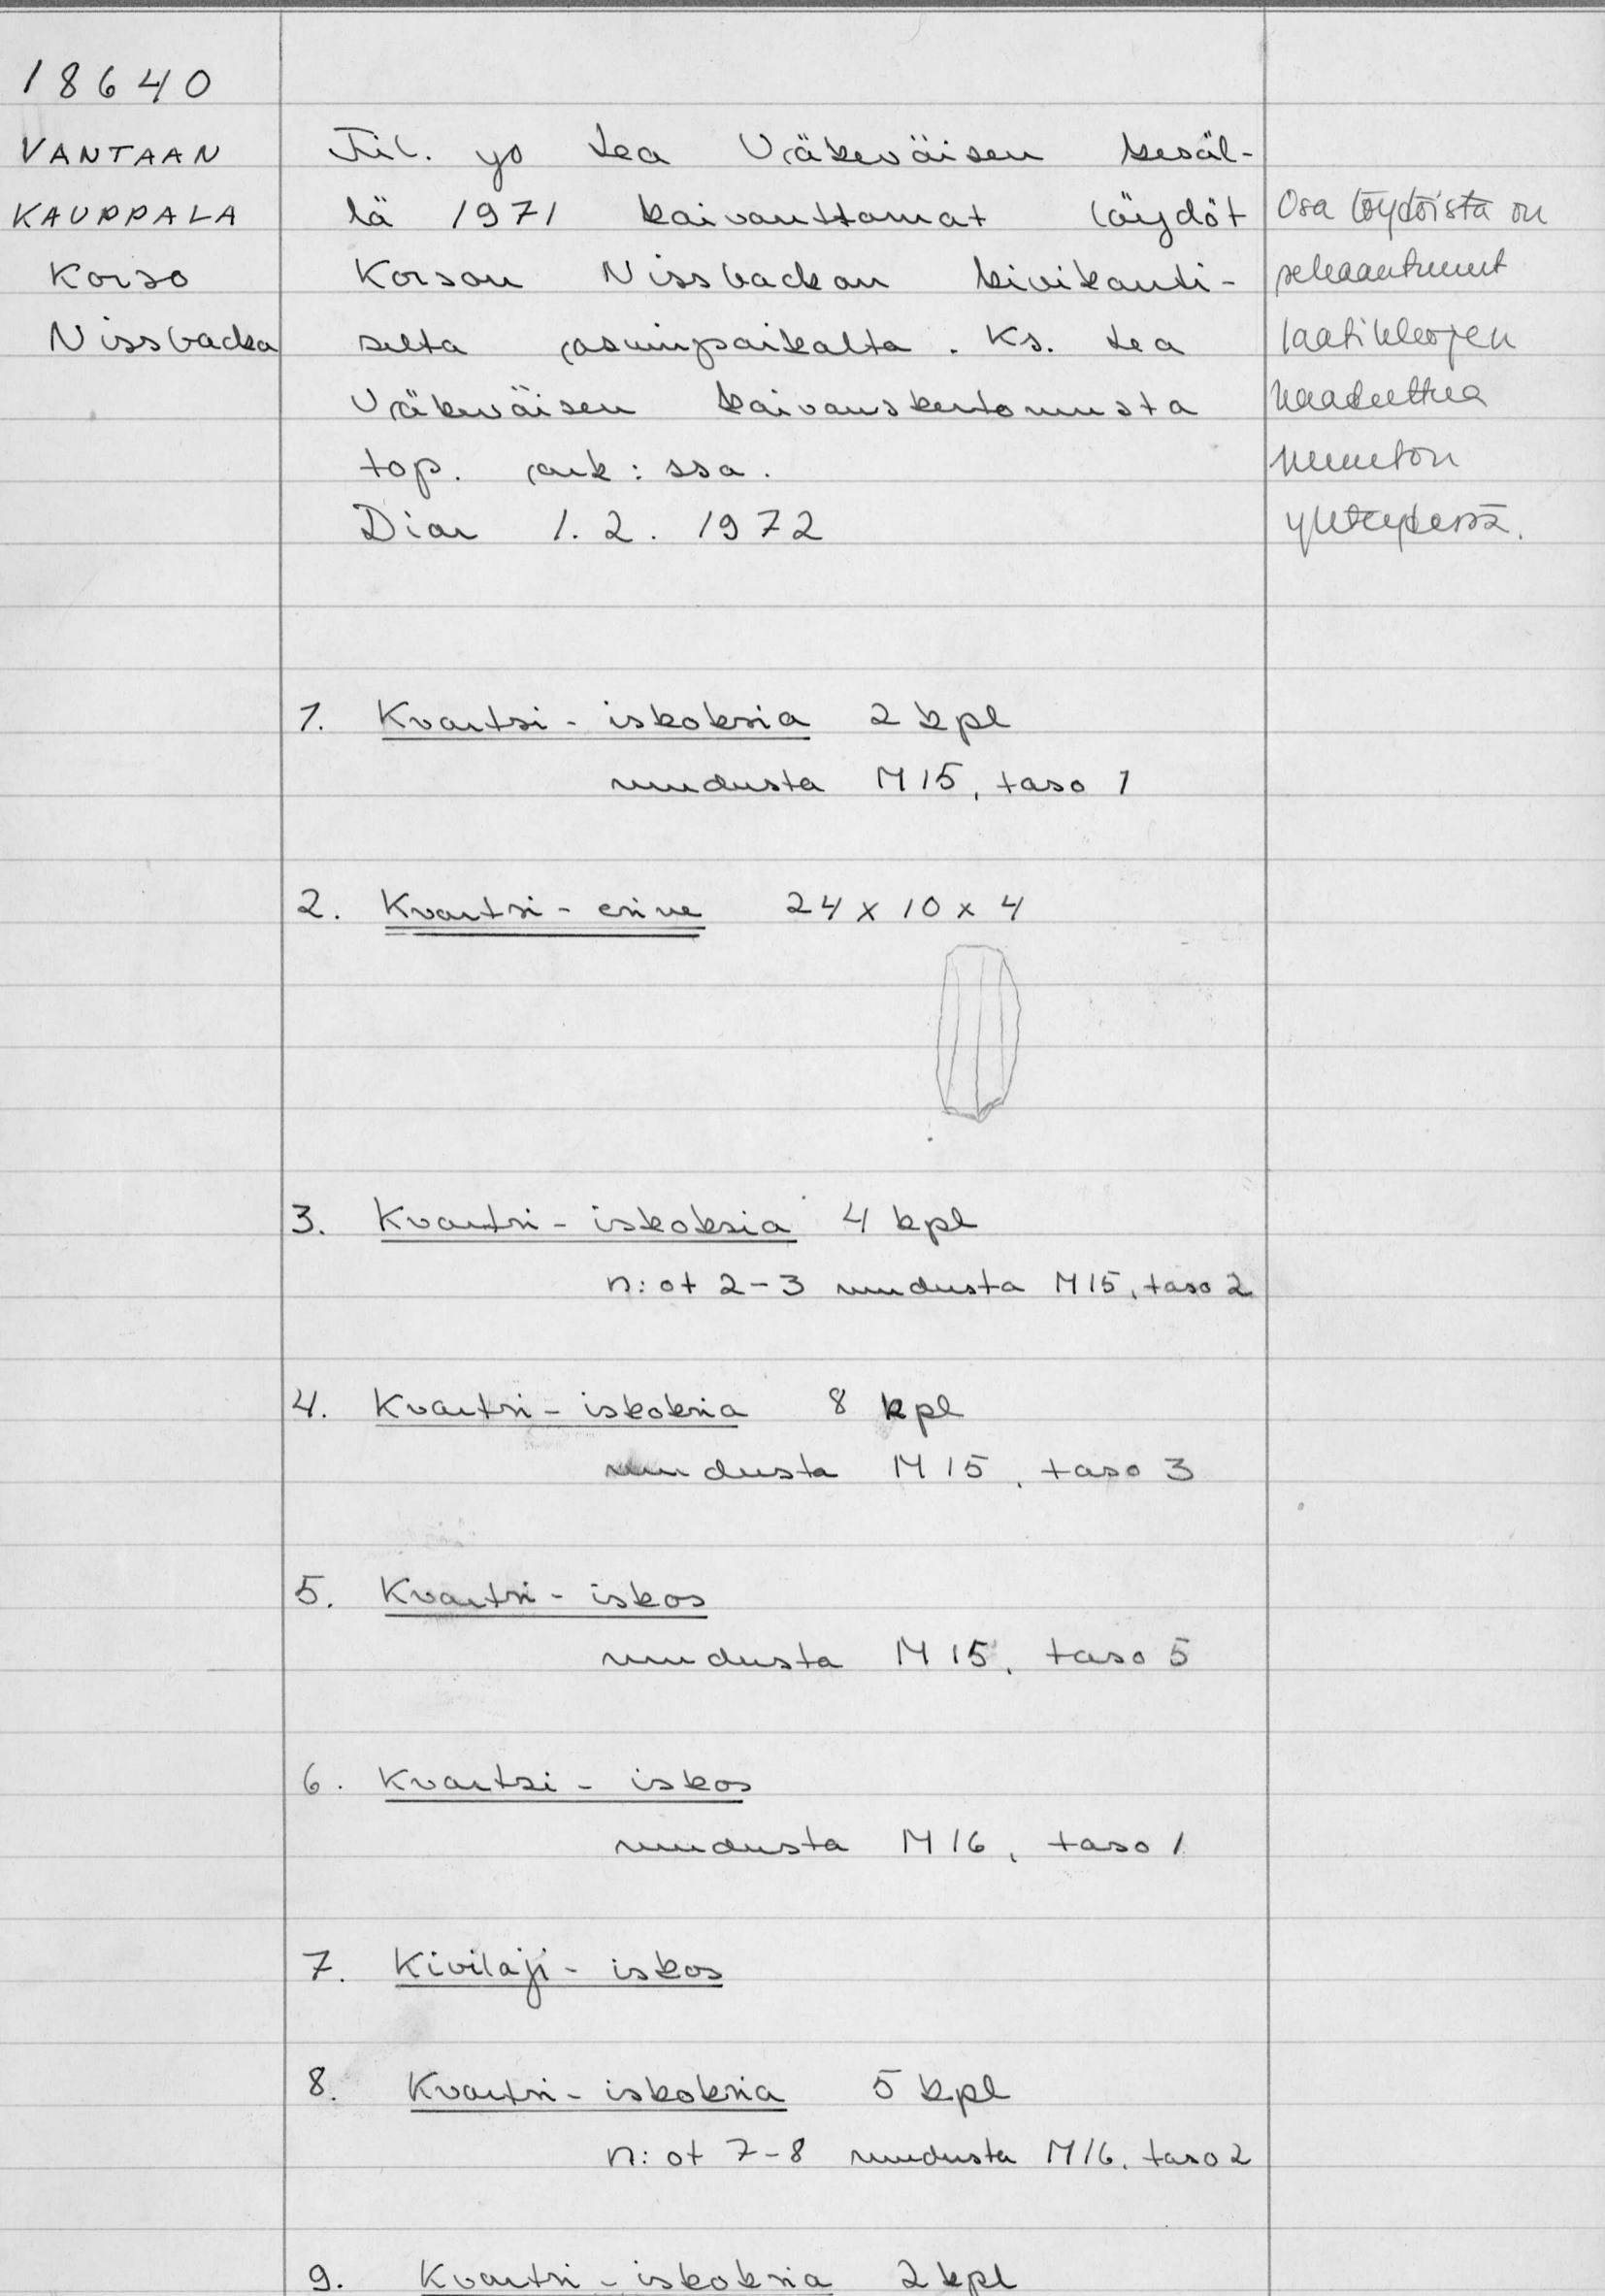 18640
VANTAAN
KAUPPALA
Korso
Nissbacka
Fil. yo Lea Väkeväisen kesäl-
lä 1971 kaivauttamat löydöt
Korson Nissbackan kivikauti-
selta asuinpaikalta. Ks. Lea
Väkeväisen kaivauskertomusta
top. ark:ssa.
Diar 1.2.1972
Osa löydöistä on
sekaantunut
laatikkojen
kaaduttua
muuton
yhteydessä.
1. Kvartsi-iskoksia 2 kpl
ruudusta M15, taso 1
2. Kvartsi-esine 24 x 10 x 4
3. Kvartsi-iskoksia 4 kpl
n:ot 2-3 ruudusta M15, taso 2
4. Kvartsi-iskoksia 8 kpl
ruudusta M15, taso 3
5. Kvartsi-iskos
ruudusta M15, taso 5
6. Kvartsi-iskos
ruudusta M16, taso 1
7. Kivilaji-iskos
8. Kvartsi-iskoksia 5 kpl
n:ot 7-8 ruudusta M16, taso 2
9. Kvartsi-iskoksia 2 kpl